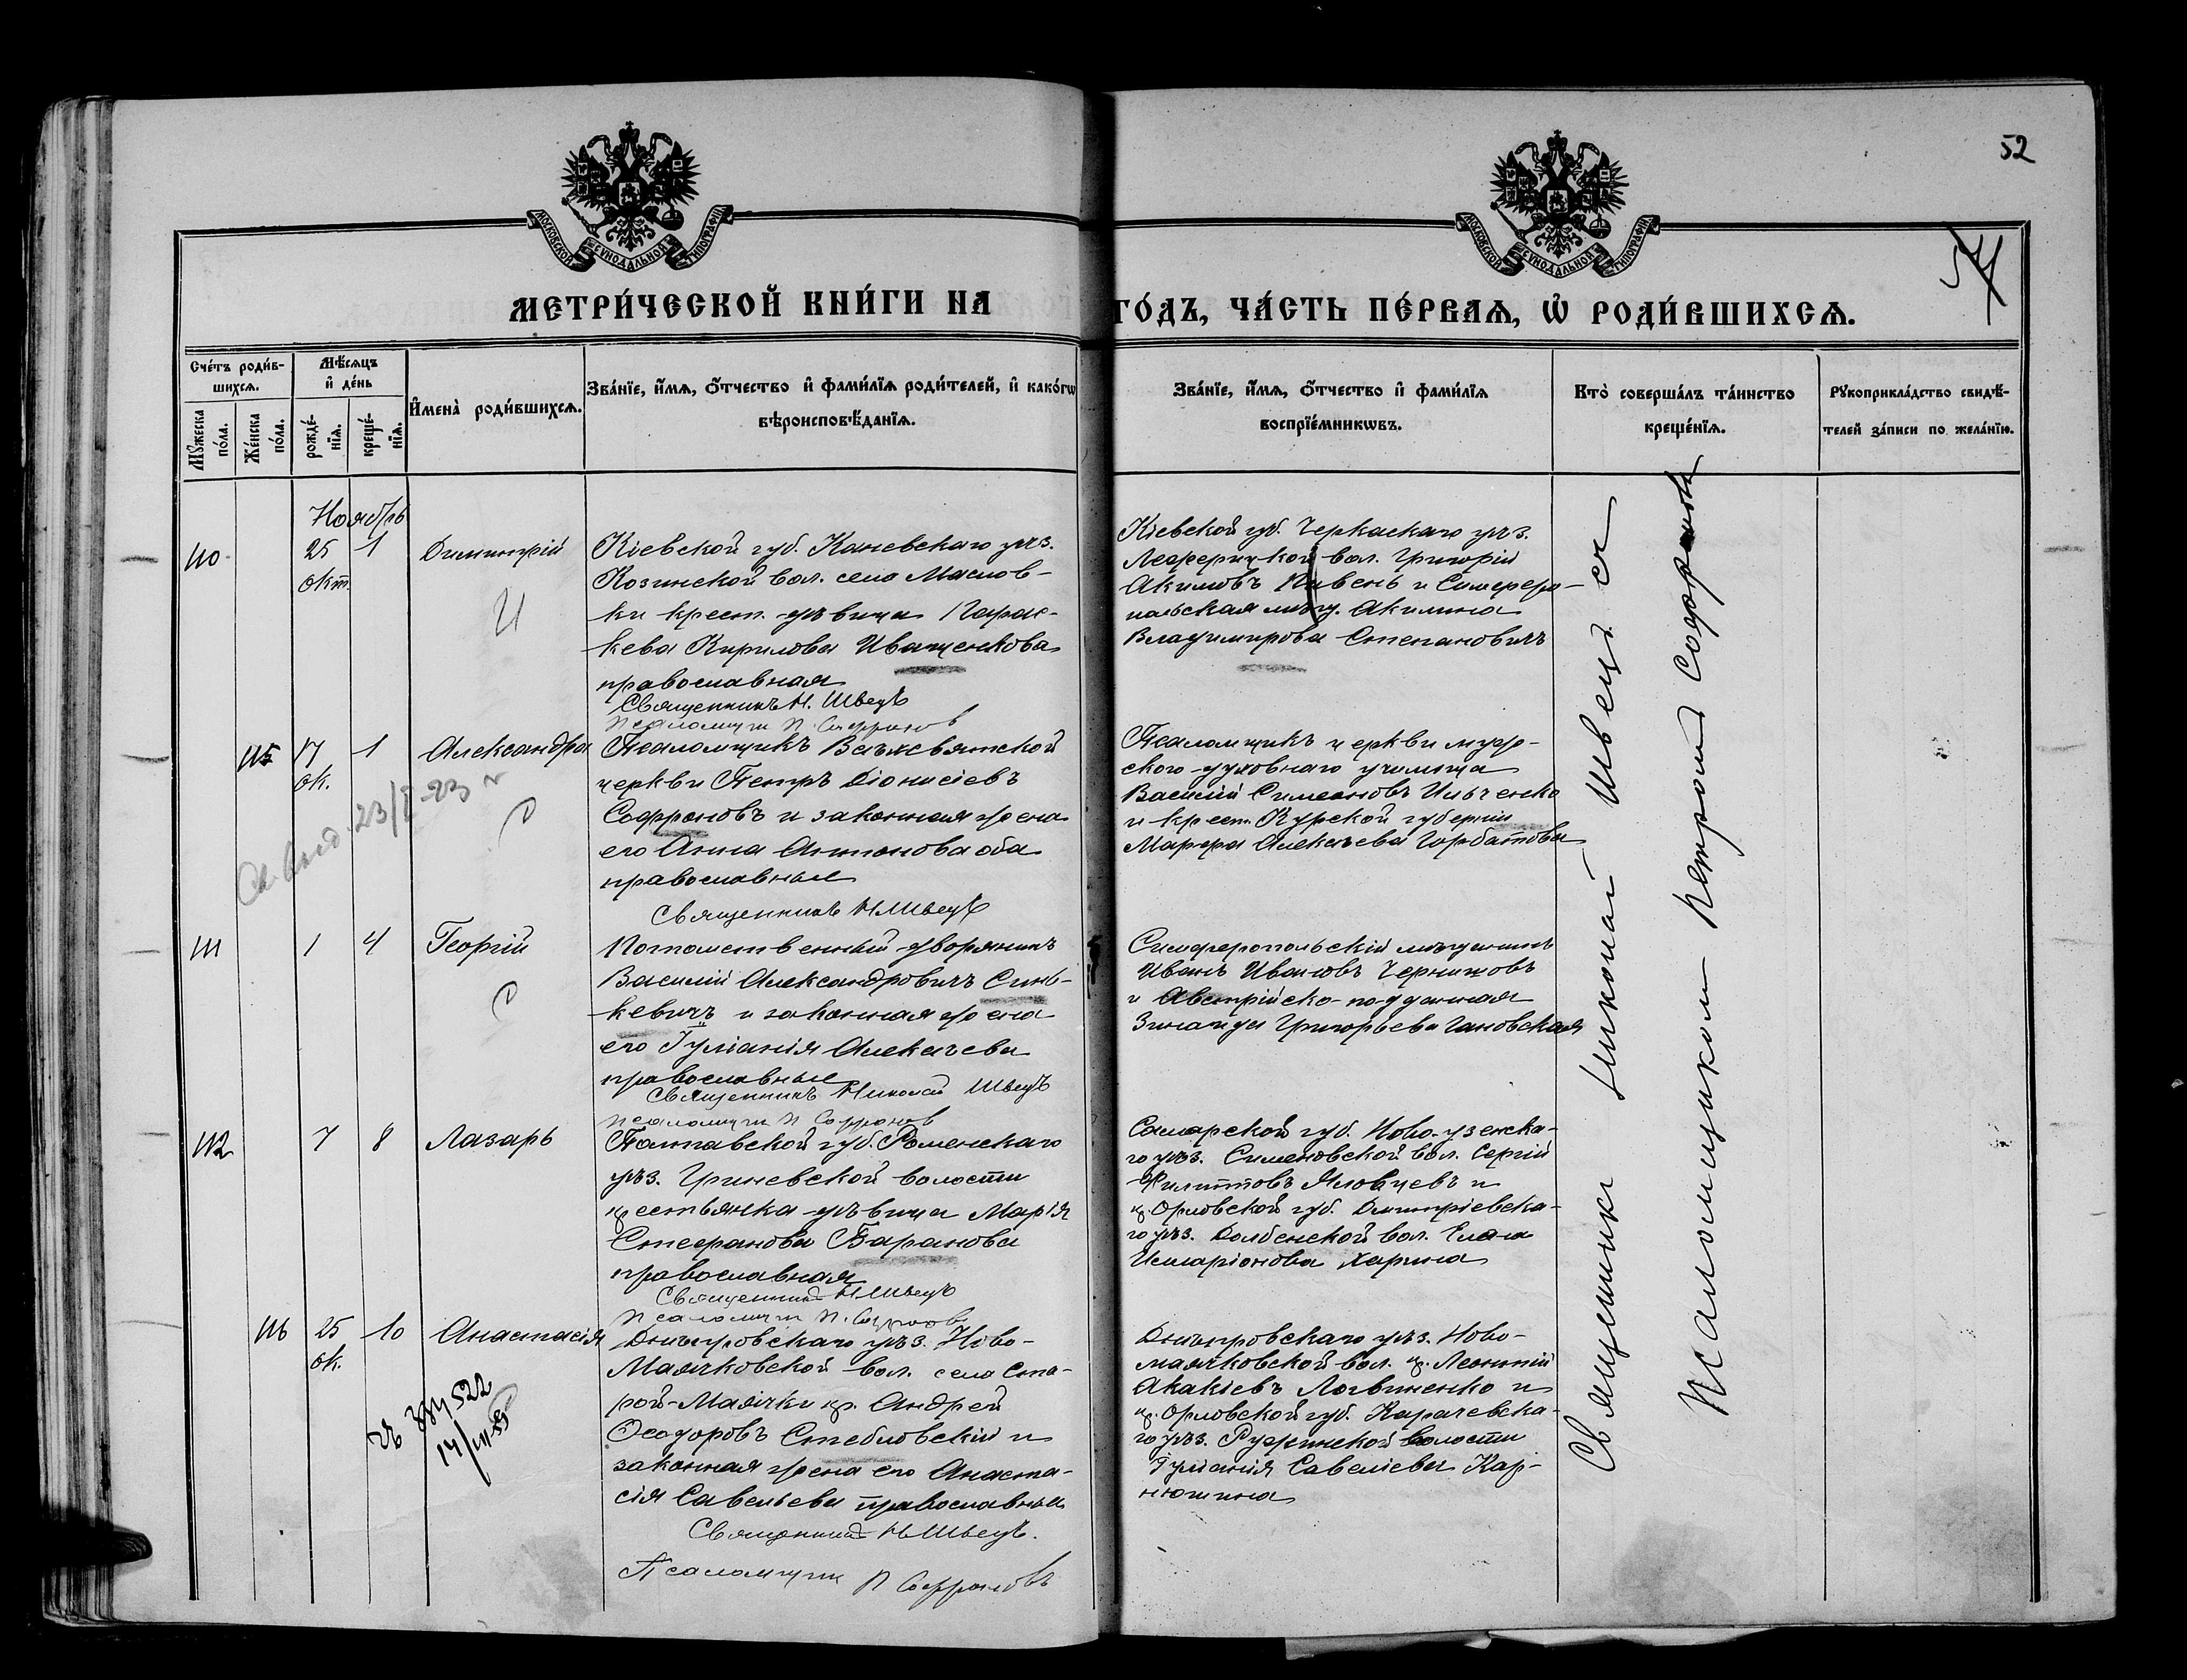 52
МОСКОВСКОЙ СѴНОДАЛЬНОЙ ТИПОГРАФІИ
МОСКОВСКОЙ СѴНОДАЛЬНОЙ ТИПОГРАФІИ
МЕТРИ́ЧЕСКОЙ КНИ́ГИ НА ГО́ДЪ, ЧА́СТЬ ПЕ́РВАѦ, Ѡ҆ РОДИ́ВШИХСѦ.
Сче́тъ роди́в-
шихсѧ.
Мꙋ́жеска по́ла.
Же́нска по́ла.
Мѣ́сѧцъ
и҆ де́нь
рожде́-
нїѧ.
креще́-
нїѧ.
И҆мена̀ роди́вшихсѧ.
Зва́нїе, и҆́мѧ, ѻ҆́тчество и҆ фами́лїѧ роди́телей, и҆ како́гѡ
вѣроисповѣ́данїѧ.
Зва́нїе, и҆́мѧ, ѻ҆́тчество и҆ фами́лїѧ
воспрїе́мникѡвъ.
Кто̀ соверша́лъ та́инство
креще́нїѧ.
Рꙋкоприкла́дство свидѣ́-
телей за́писи по жела́нїю.
Ноябрь
110 25 окт. 1 Димитрій
Кіевской губ. Каневскаго уѣз.
Козинской вол. села Маслов-
ки крест. дѣвица Парас-
кева Кирилова Иващенкова
православная
Священникъ Н. Швецъ
псаломщик П. Софронов
Кіевской губ. Черкаскаго уѣз.
вол. Григорій
Акимовъ Пивень и Симферо-
польская мѣщ. Акилина
Владимирова Степановичъ
115 17 ок. 1 Александра
Псаломщикъ Всѣхсвятской
церкви Петръ Діонисіевъ
Софроновъ и законная жена
его Анна Антонова оба
православные
Священникъ Н Швецъ
Псаломщикъ церкви
духовнаго училища
Василій Симеоновъ Ильченко
и крест. Курской губерніи
Марфа Алексѣева Горбатова
23/I-23
111 1 4 Георгій
Потомственный дворянинъ
Василій Александровичъ Синь-
кевичъ и законная жена
его Іуліанія Алексѣева
православные
Священникъ Николай Швецъ
псаломщик П Софронов
Симферопольскій мѣщанинъ
Иванъ Ивановъ
и Австрійско-подданная
Зинаида Григорьева Гановская
112 7 8 Лазарь
Полтавской губ. Роменскаго
уѣз. Гриневской волости
крестьянка дѣвица Марія
Стефанова Баранова
православная
Священник Н Швецъ
псаломщик П. Софронов
Самарской губ. Ново-узенска-
го уѣз. вол. Сергій
Филипповъ Яловцевъ и
кр. Орловской губ. Дмитріевска-
го уѣз. Долбенской вол. Елена
Илларіонова Харина
116 25 ок. 10 Анастасія
Днѣпровскаго уѣз. Ново-
Маячковской вол. села Ста-
рой-Маячки кр. Андрей
Ѳеодоровъ Стебловскій и
законная жена его Анаста-
сія Савельева православные
Священник Н Швецъ.
Псаломщик П Софроновъ
Днѣпровскаго уѣз. Ново-
маячковской вол. кр. Леонтій
Акакіевъ Логвиненко и
кр. Орловской губ. Карачевска-
го уѣз. волости
Іуліанія Савеліева Кар-
нюшина
Священник Николай Швец съ
Псаломщиком Петром Софроновым